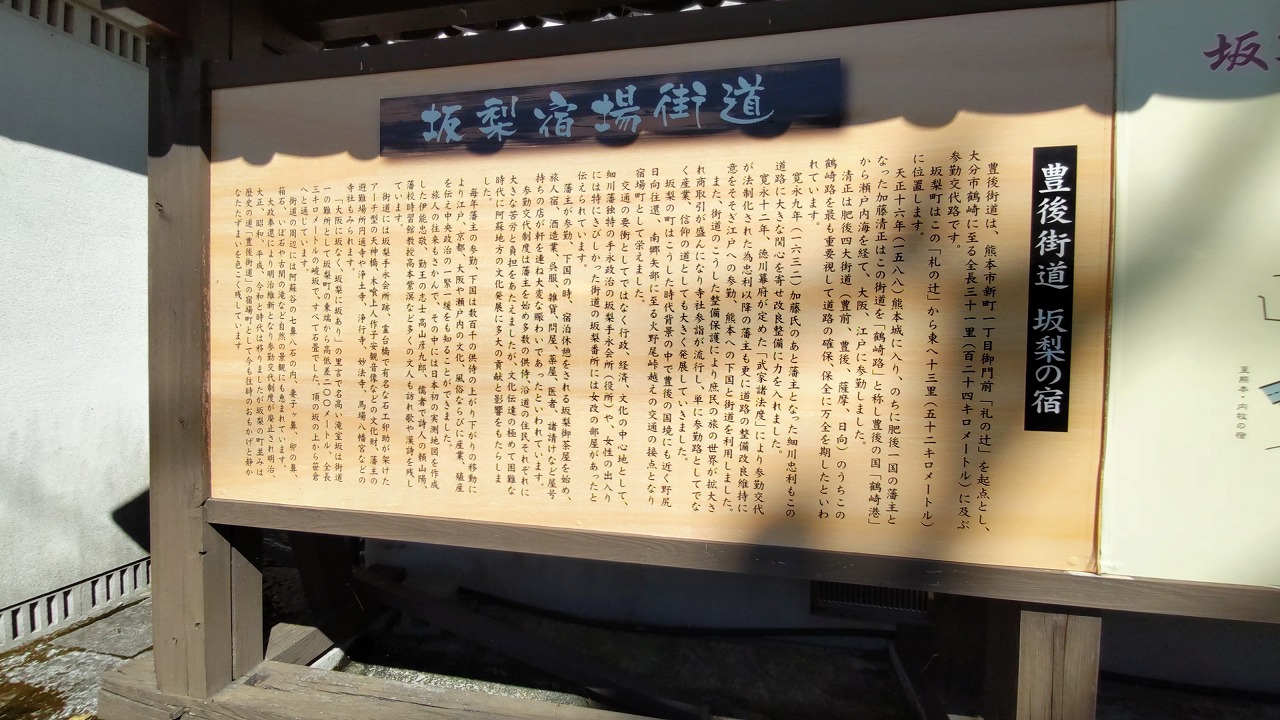 坂梨宿場街道
豊後街道 坂梨の宿
豊後街道は、熊本市新町一丁目御門前「札の辻」を起点とし、
大分市鶴崎に至る全長三十一里(百二十四キロメートル)に及ぶ
参勤交代路です。
坂梨町はこの「札の辻」から東へ十三里(五十二キロメートル)
に位置します。
天正十六年(一五八八)熊本城に入り、のちに肥後一国の藩主と
なった加藤清正はこの街道を「鶴崎路」と称し豊後の国「鶴崎港」
から瀬戸内海を経て、大阪、江戸に参勤しました。
清正は肥後四大街道(豊前、豊後、薩摩、日向)のうちこの
鶴崎路を最も重要視して道路の確保、保全に万全を期したといわ
れています。
寛永九年(一六三二)加藤氏のあと藩主となった細川忠利もこの
道路に大きな関心を寄せ改良整備に力を入れました。
寛永十二年、徳川幕府が定めた「武家諸法度」により参勤交代
が法制化された為忠利以降の藩主も更に道路の整備改良維持に
意をそそぎ江戸への参勤、熊本への下国と街道を利用しました。
また、街道のこうした整備保護により庶民の旅の世界が拡大さ
れ商取引が盛んになり寺社参詣が流行し、単に参勤路としてでな
く産業、信仰の道としても大きく発展していきました。
坂梨の町はこうした時代背景の中で豊後の国境にも近く野尻
日向往還、南郷矢部に至る火野尾峠越えの交通の接点となり
宿場町として栄えました。
交通の要衝としてではなく、行政、経済、文化の中心地として、
細川藩独特の手永政治の坂梨手永会所(役所)や、女性の出入り
には特にきびしかった街道の坂梨番所には女改の部屋があったと
伝えられています。
藩主が参勤、下国の時、宿泊休憩をされる坂梨御茶屋を始め、
旅人宿、酒造業、呉服、雑貨、問屋、薬屋、医者、諸請けなど屋号
持ちの店が軒を連ね大変な賑わいであったといわれています。
参勤交代制度は藩主を始め多数の供侍、沿道の住民それぞれに
大きな苦労と負担をあたえましたが、文化伝達の極めて困難な
時代に阿蘇地方の文化発展に多大の貢献と影響をもたらしま
した。
毎年藩主の参勤、下国は数百千の供侍の上がり下がりの移動に
より江戸、京都、大阪や瀬戸内の文化、風俗ならびに産業、殖産
を伝え中央政治の一繁一端をも知ることができました。
旅人の往来もさかんで、その中には日本初の実測地図を作成
した伊能忠敬、勤王の志士高山彦九郎、儒者で詩人の頼山陽、
藩校時習館教授高本紫溟など多くの文人も訪れ歌や漢詩を残し
ています。
街道には坂梨手永会所跡、霊台橋で有名な石工卯助が架けた
アーチ型の天神橋、木喰上人作子安観音像などの文化財、藩主の
避難場所の遍寺や、浄土寺、浄行寺、妙法寺、馬場八幡宮などの
寺社もみられます。
「大阪に坂なく、坂梨に坂あり」の里言で名高い滝室坂は街道
一の難所として坂梨町の東端から高低差二〇〇メートル、全長
三キロメートルの峻坂で、すべて石畳でした。頂の坂の上から笹倉
へと通じています。
街道の周辺には阿蘇谷の七鼻八石の内、妻ヶ鼻、卯の鼻、
箱石、い石や古閑の滝など自然の景観にも恵まれています。
大政奉還により明治維新となり参勤交代制度が廃止され明治、
大正、昭和、平成、令和と時代は移りましたが坂梨の町並みは
歴史の道「豊後街道」の宿場町として今も往時のおもかげと静か
なたたずまいを色こく残しています。
坂
至熊本・内牧の宿